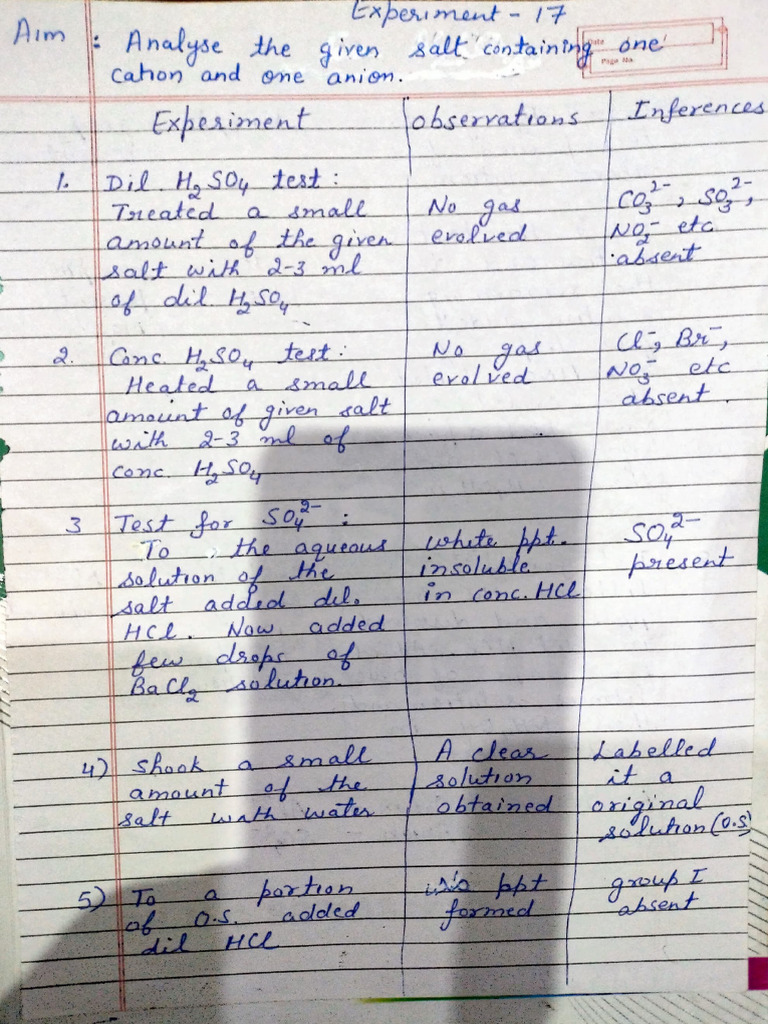 Experiment - 17
Aim : Analyse the given salt containing one
cation and one anion.
Page No.
Experiment observations Inferences
1. Dil. H₂SO₄ test :
Treated a small
amount of the given
salt with 2-3 ml
of dil. H₂SO₄
No gas
evolved
CO₃²⁻, SO₃²⁻,
NO₂⁻ etc
absent
2. Conc. H₂SO₄ test :
Heated a small
amount of given salt
with 2-3 ml of
conc. H₂SO₄
No gas
evolved
Cl⁻, Br⁻,
NO₃⁻ etc
absent.
3 Test for SO₄²⁻ :
To the aqueous
solution of the
salt added dil.
HCl. Now added
few drops of
BaCl₂ solution.
white ppt.
insoluble
in conc. HCl
SO₄²⁻
present
4) Shook a small
amount of the
salt with water
A clear
solution
obtained
Labelled
it a
original
solution (O.S)
5) To a portion
of O.S. added
dil HCl
No ppt
formed
group I
absent